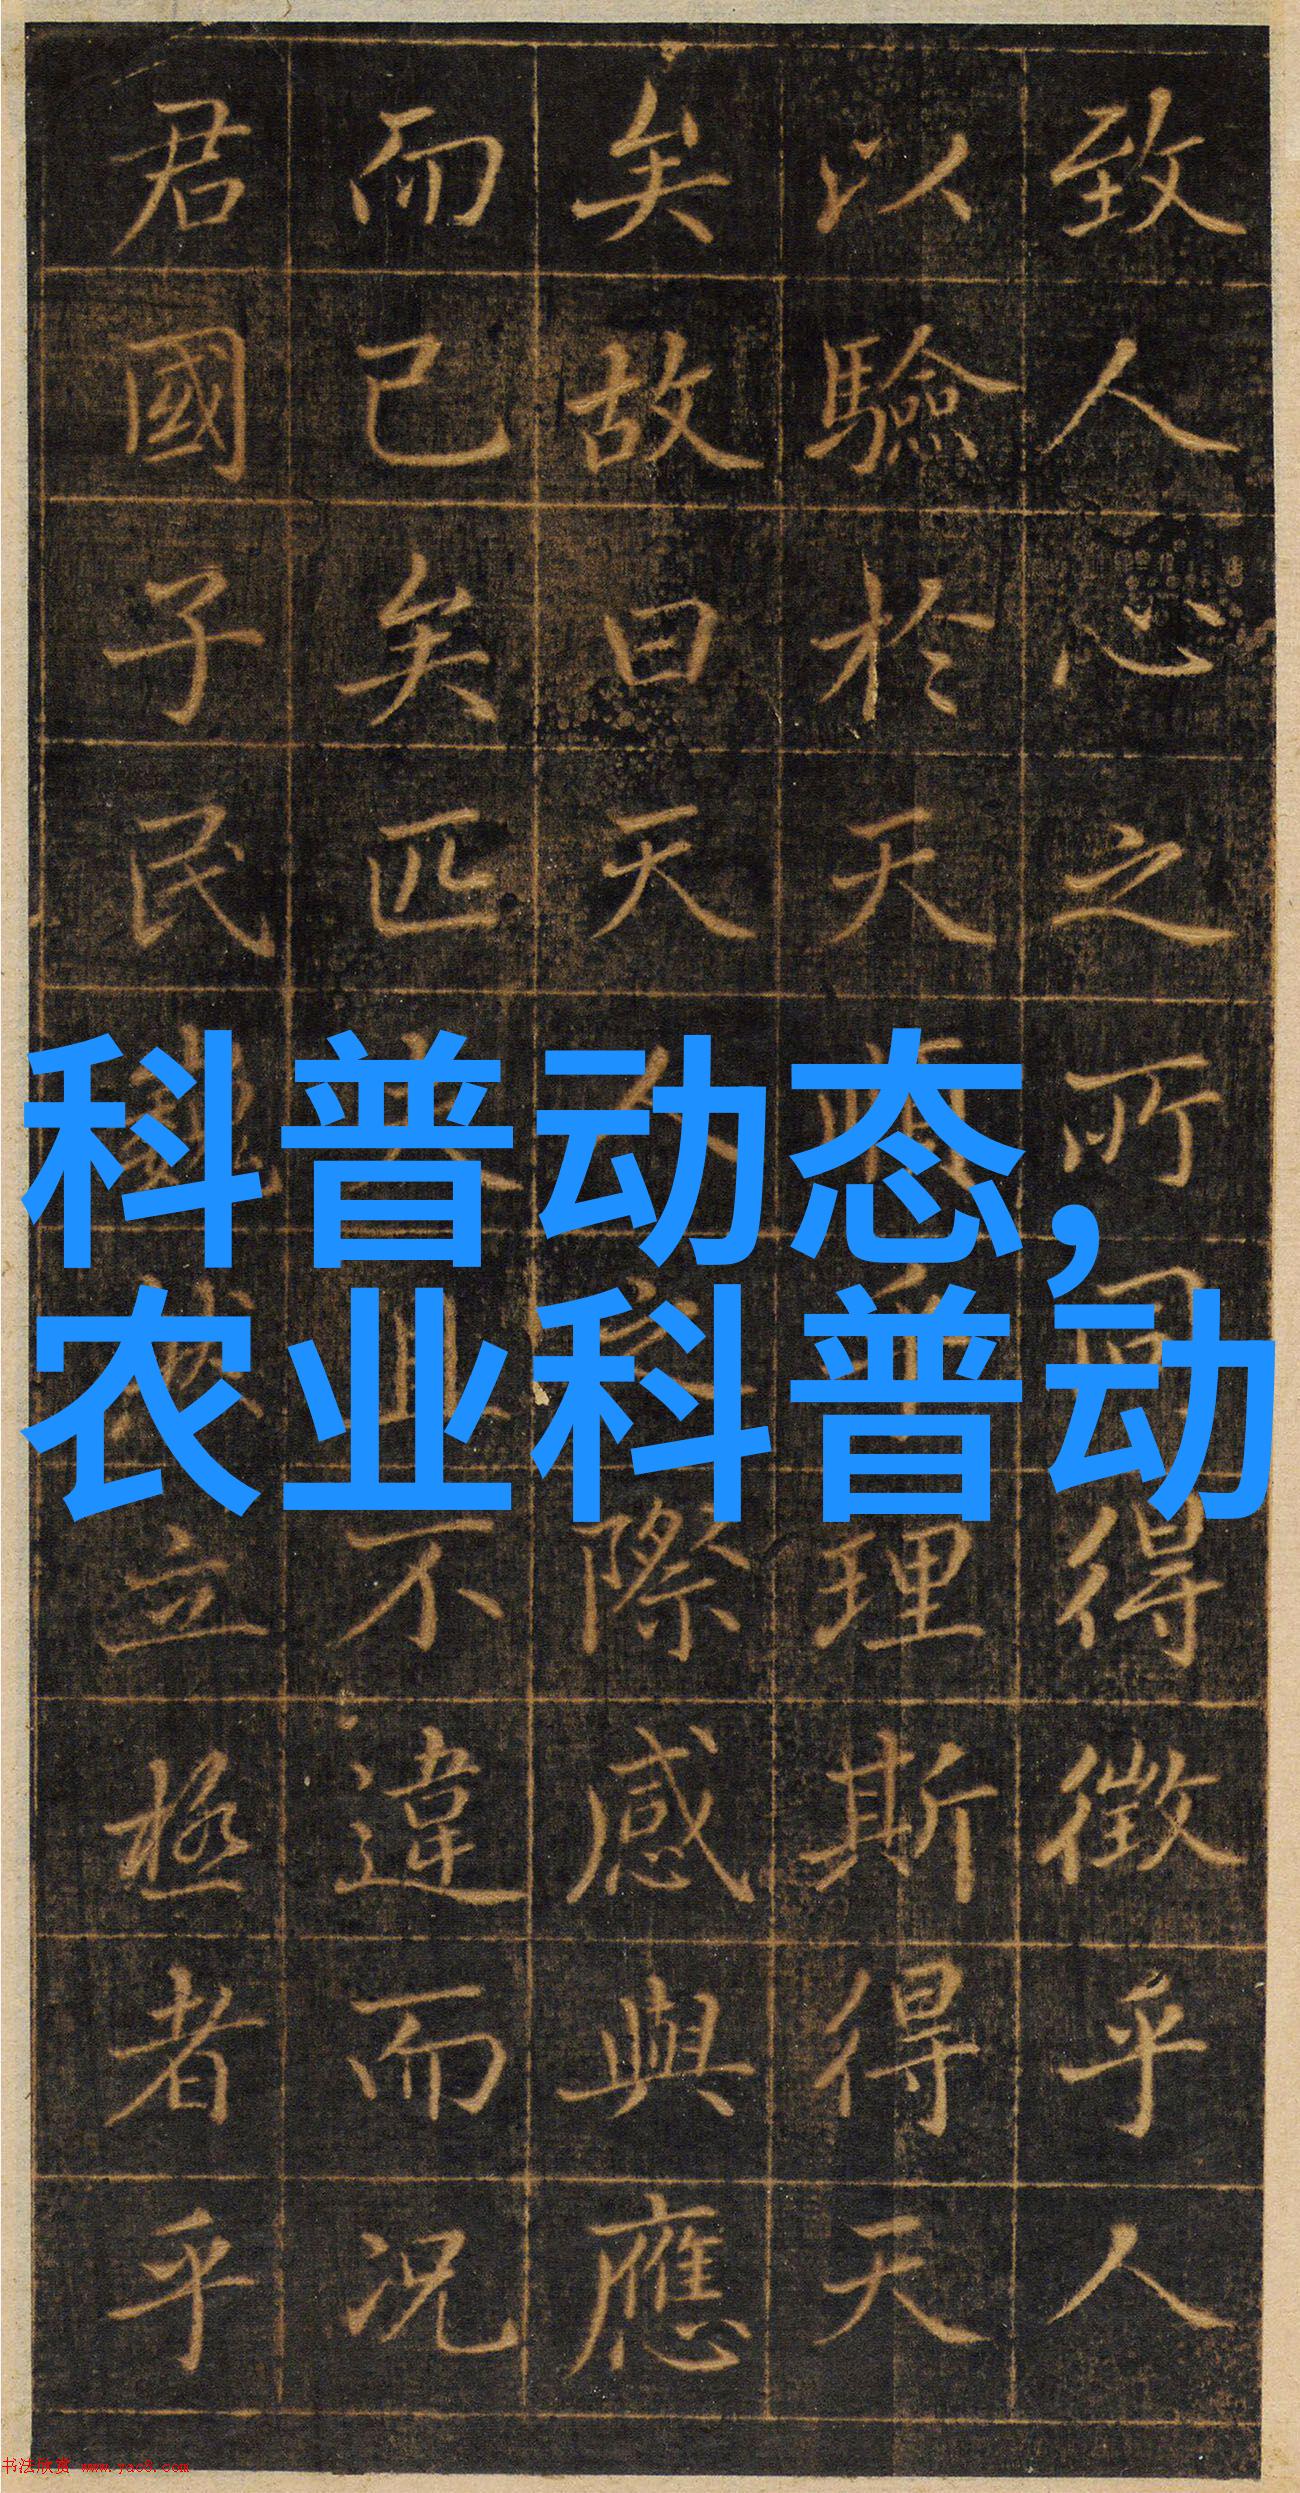 致人心之所得徵乎人
以驗於天順理斯得天
矣故曰天人之際感與應
而已矣匹夫且不違而況
君國子民巍立極者乎
科普动态,
农业科普动
书法欣赏 www.yac8.com